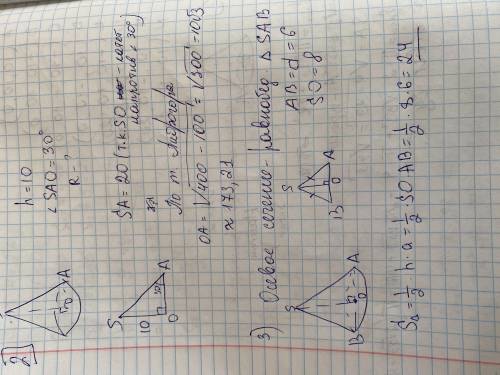 2
h = 10
∠SAO = 30°
R - ?
S
10
O
30°
A
SA = 20 (т.к. SO - катет
напротив ∠ 30°
По т. Пифагора
OA = √400 - 100 = √300 = 10√3
≈ 173,21
3) Осевое сечение - равнобед Δ SAB
AB = d = 6
SO = 8
S
B
O
A
S
B
6
O
A
S∆ = 1/2 h · a = 1/2 · SO · AB = 1/2 · 8 · 6 = 24